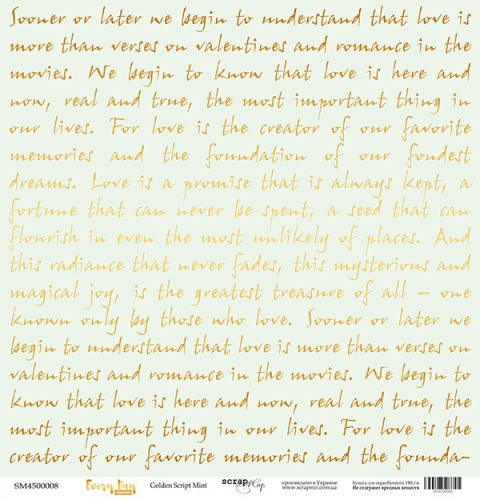 Sooner or later we begin to understand that love is
more than verses on valentines and romance in the
movies. We begin to know that love is here and
now, real and true, the most important thing in
our lives. For love is the creator of our favorite
memories and the foundation of our fondest
dreams. Love is a promise that is always kept, a
fortune that can never be spent, a seed that can
flourish in even the most unlikely of places. And
this radiance that never fades, this mysterious and
magical joy, is the greatest treasure of all – one
known only by those who love. Sooner or later we
begin to understand that love is more than verses on
valentines and romance in the movies. We begin to
know that love is here and now, real and true, the
most important thing in our lives. For love is the
creator of our favorite memories and the founda-
SM4500008 Every Day Golden Script Mint scrap Cup произведено в Украине Бумага для скрапбукинга 190г/м
www.scrapmir.com.ua Не содержит вредных веществ